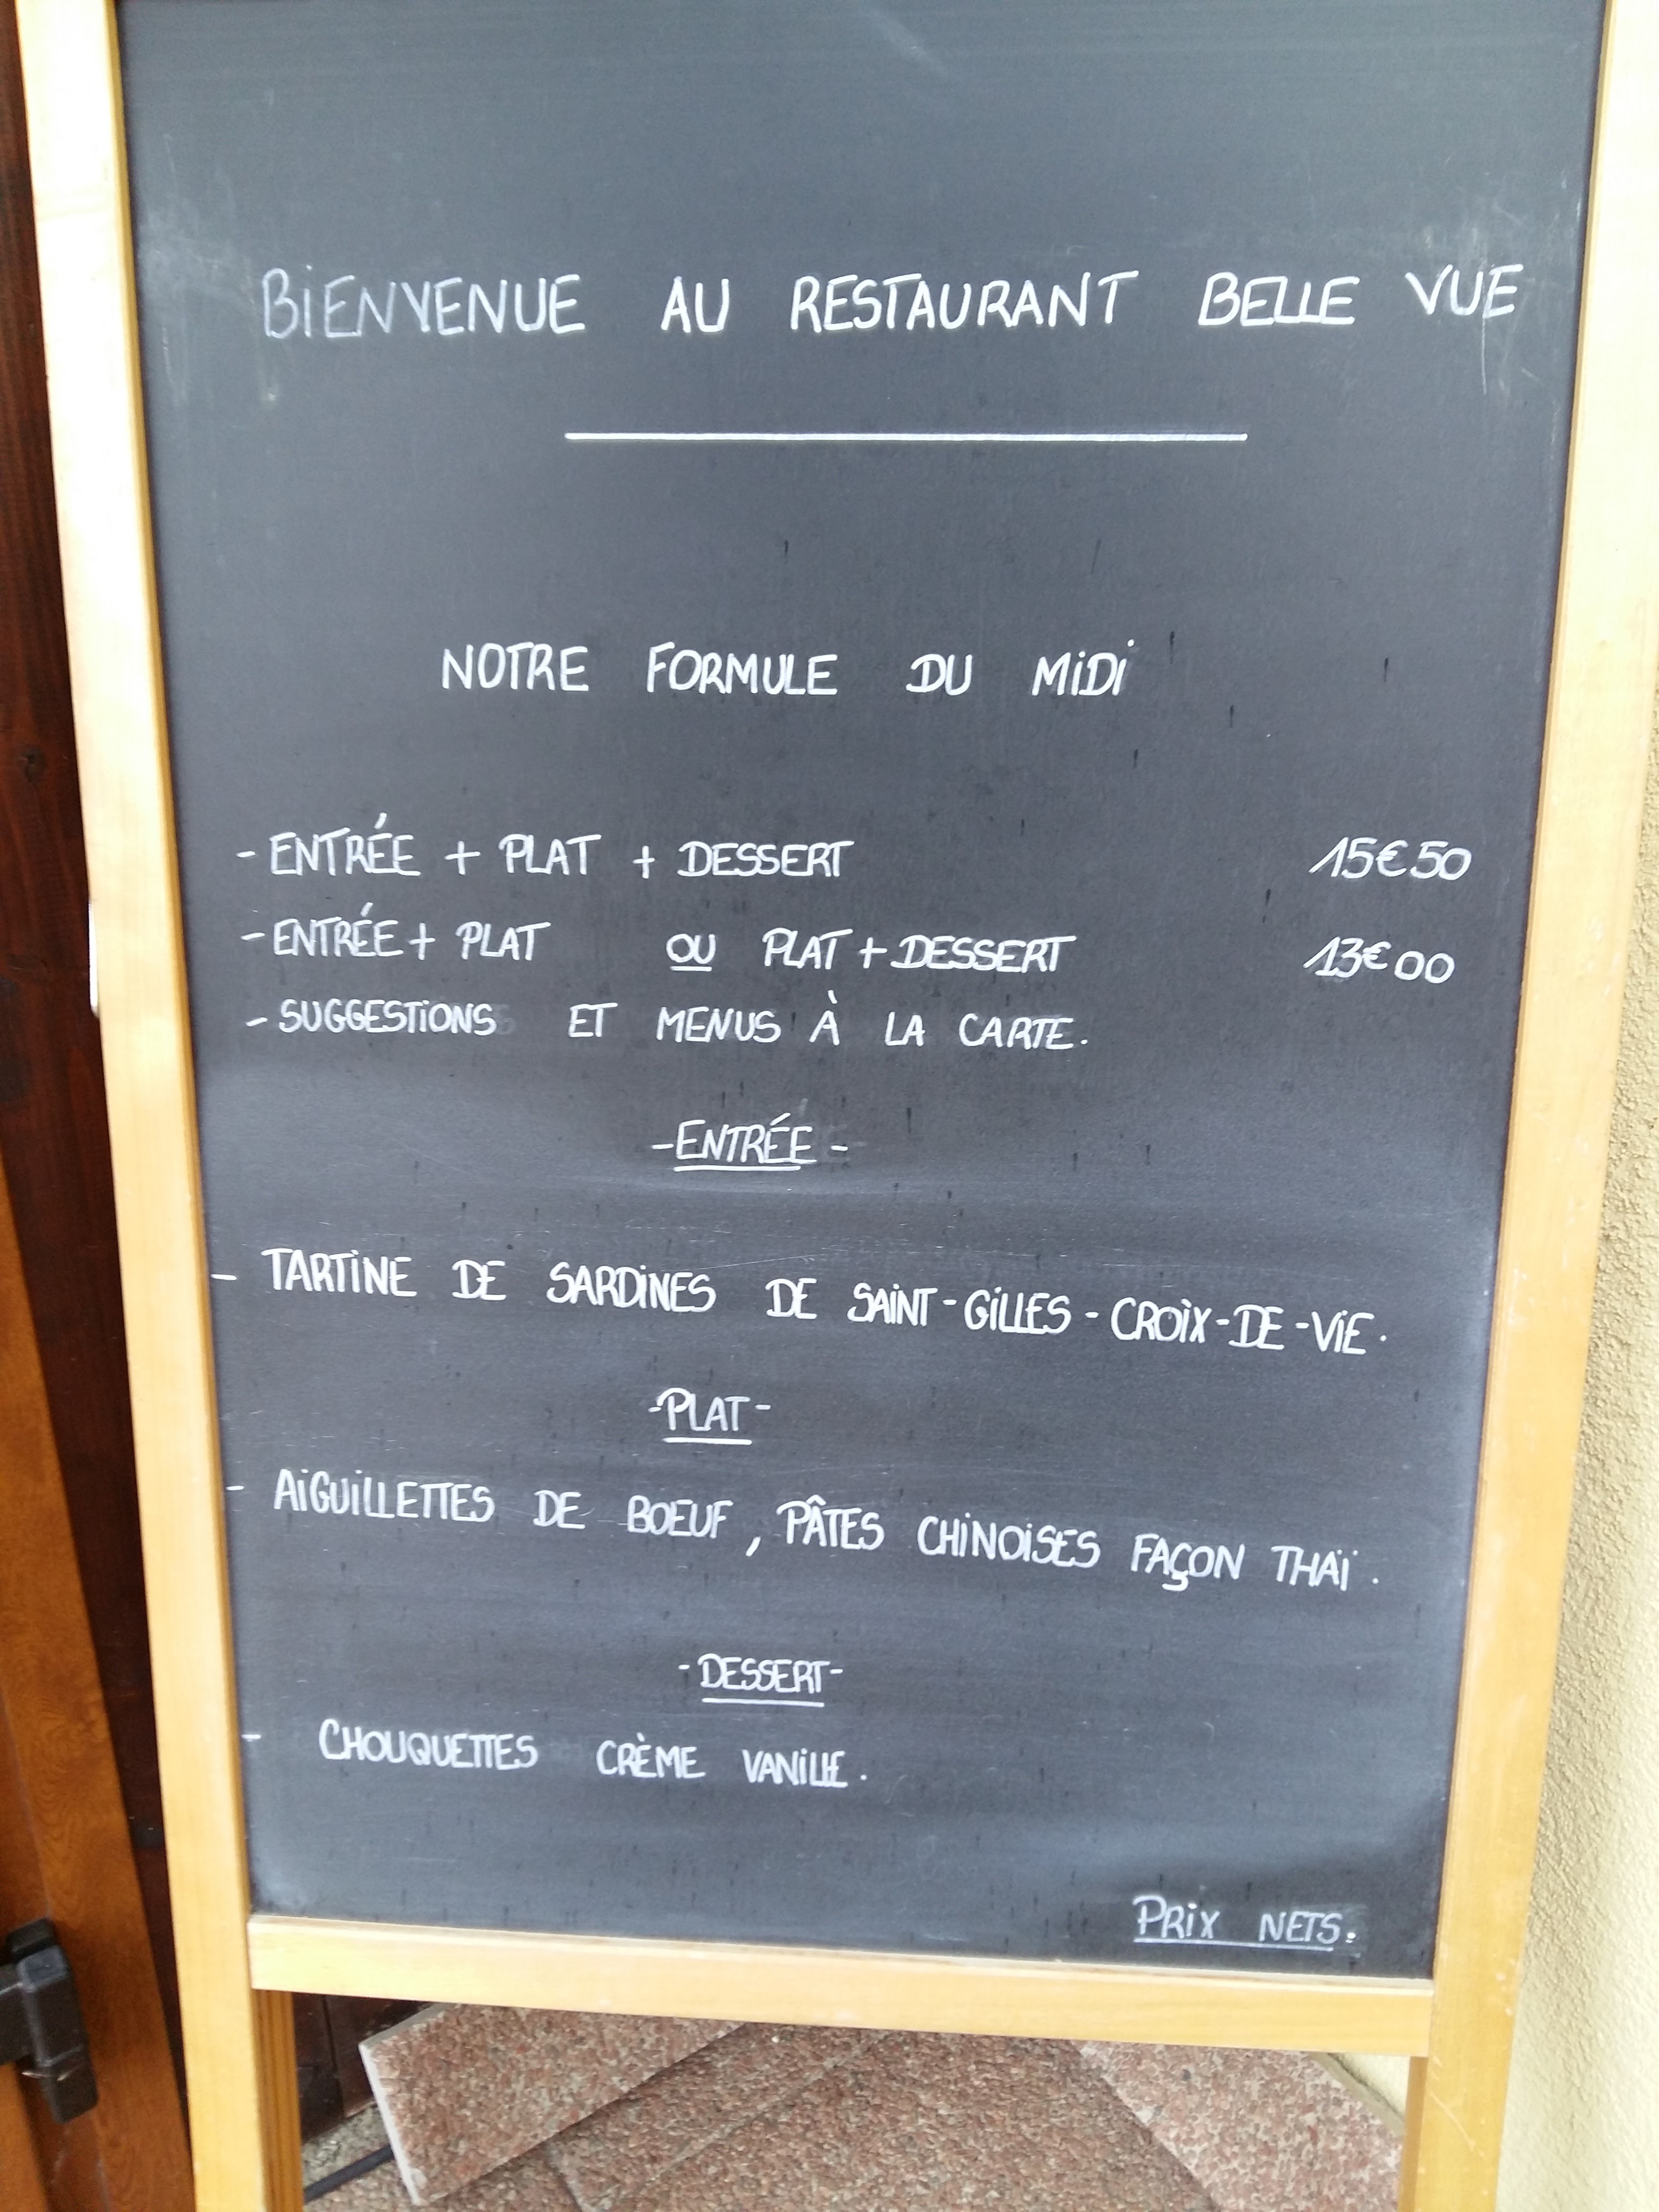 BiENVENUE AU RESTAURANT BELLE VUE
NOTRE FORMULE DU MiDi
- ENTRÉE + PLAT + DESSERT 15€50
- ENTRÉE + PLAT OU PLAT + DESSERT 13€00
- SUGGESTiONS ET MENUS À LA CARTE.
- ENTRÉE -
- TARTiNE DE SARDiNES DE SAiNT-GiLLES-CROiX-DE-ViE.
- PLAT -
- AiGUiLLETTES DE BOEUF, PÂTES CHiNOiSES FAÇON THAÏ.
- DESSERT -
- CHOUQUETTES CRÈME VANiLLE.
PRiX NETS.